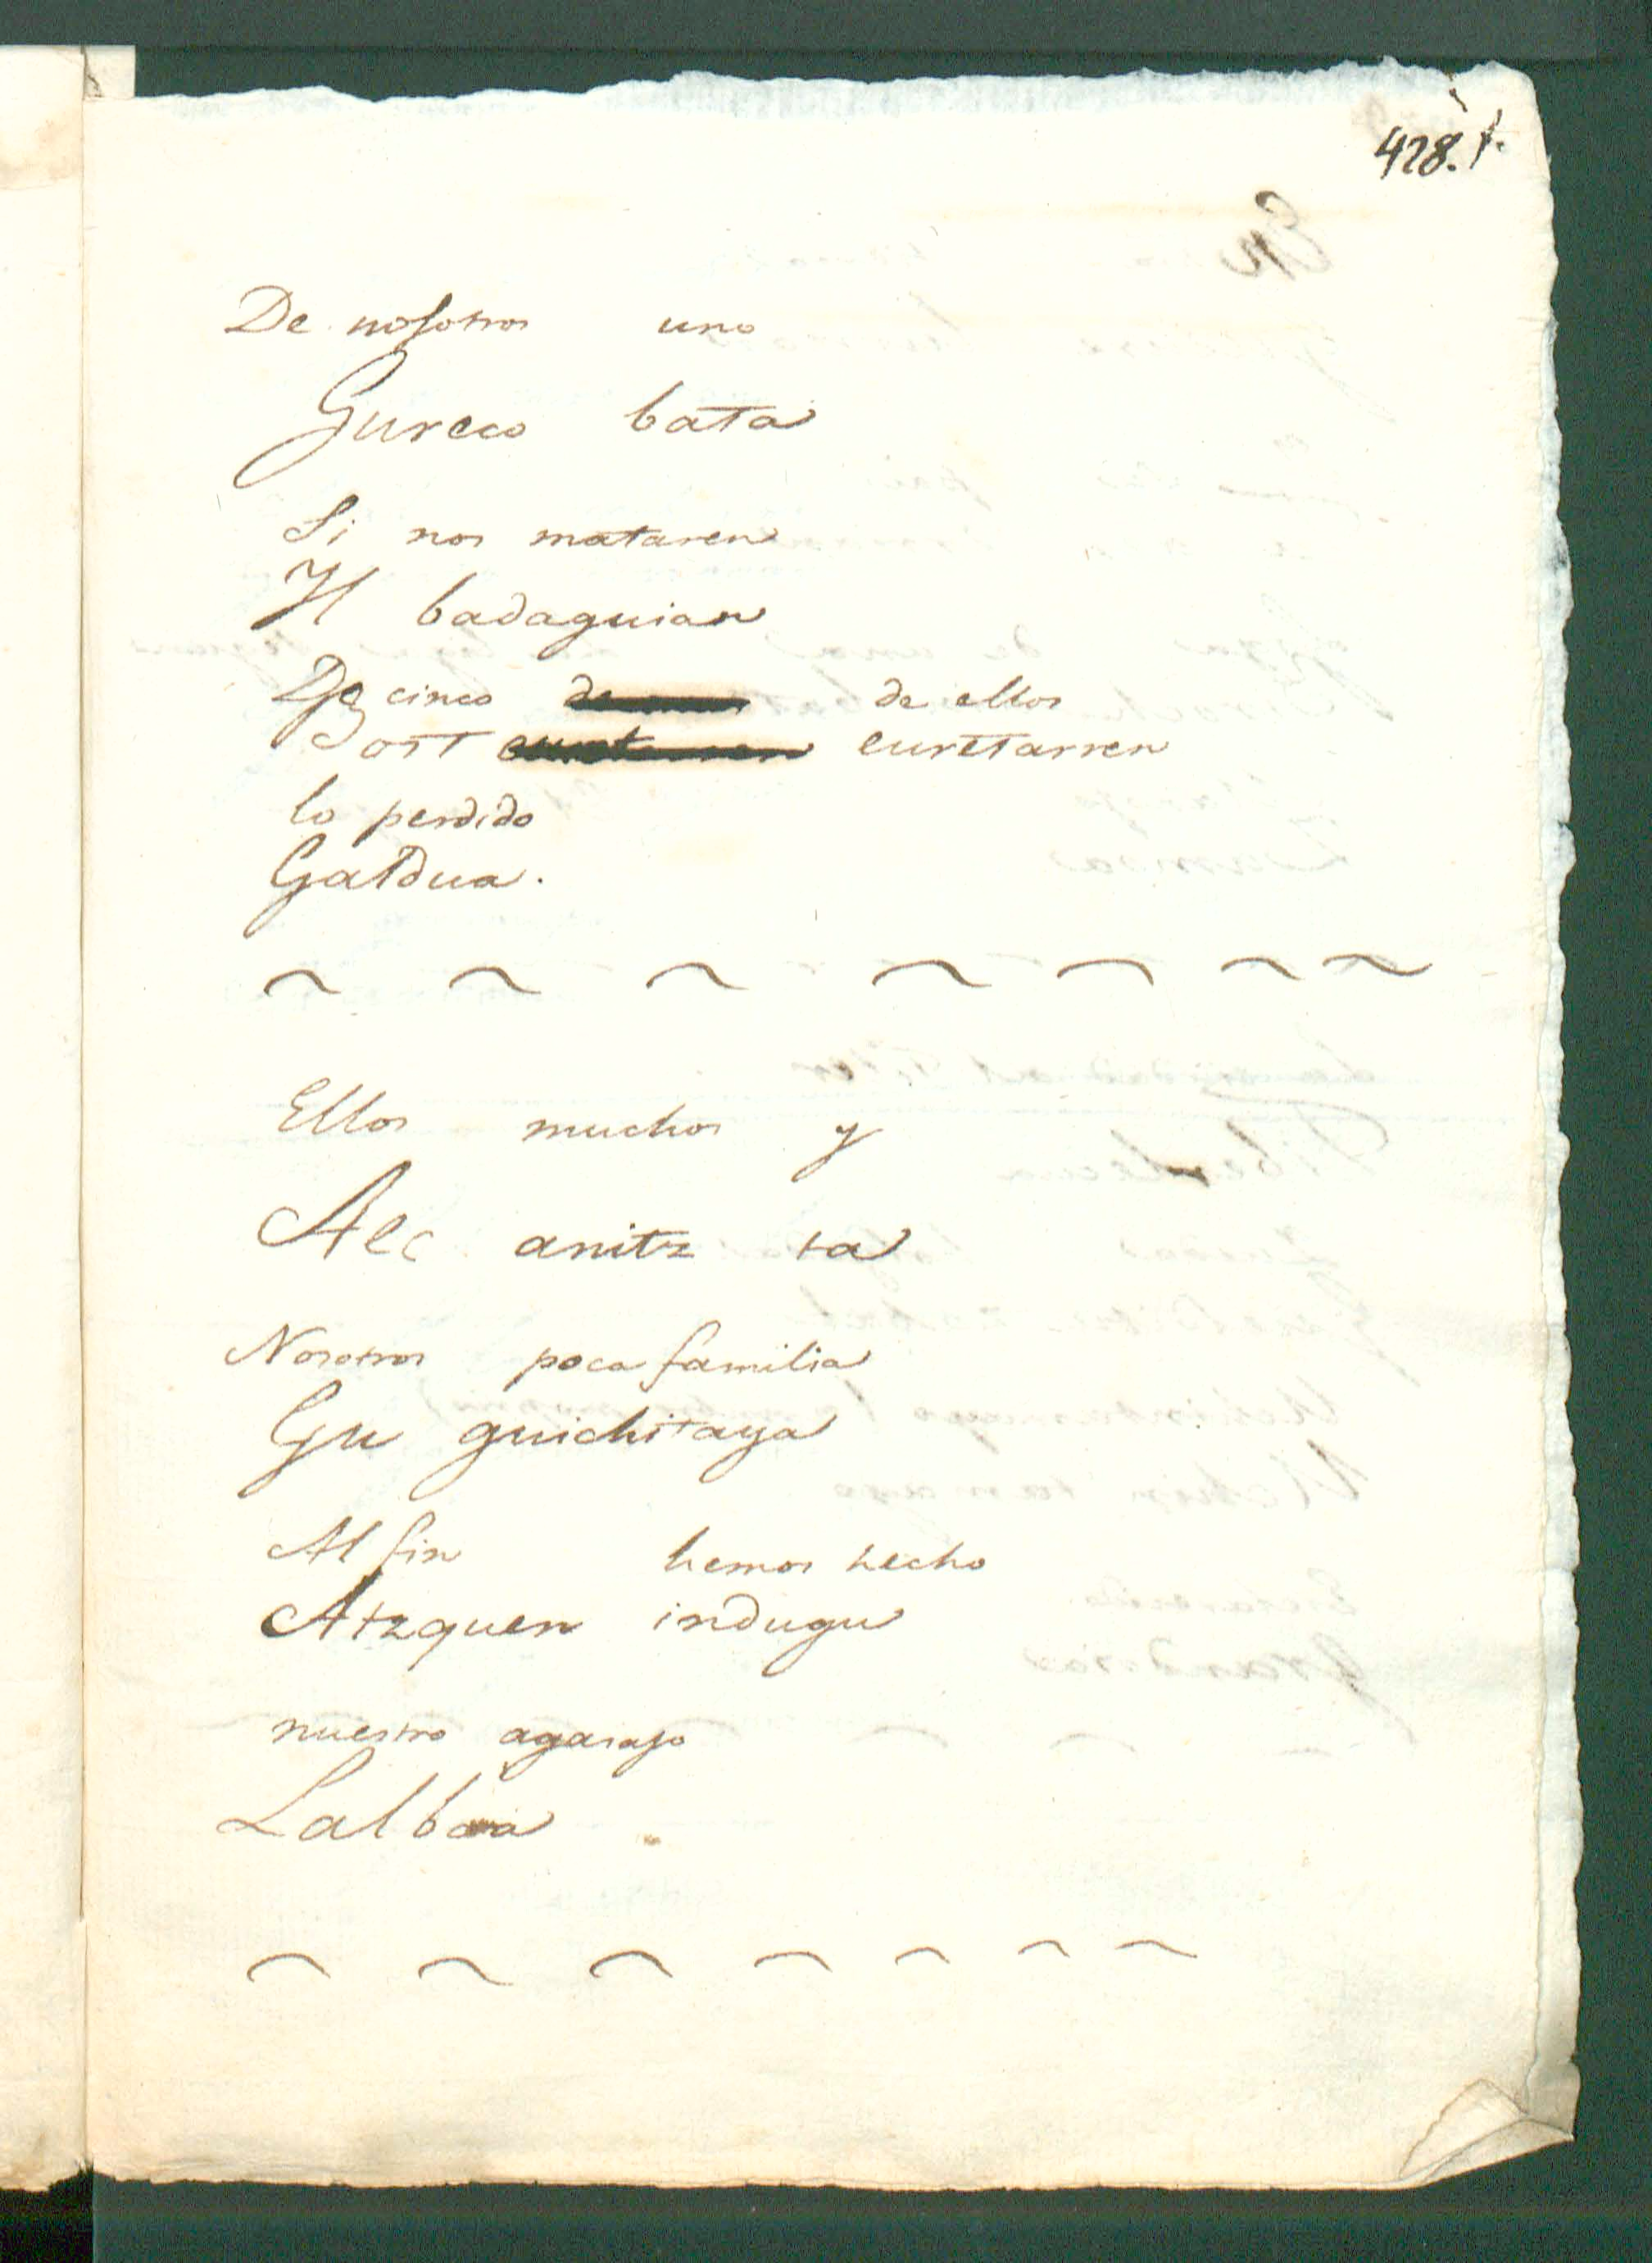 428.
De nosotros uno
Gureco bata
Si nos mataren
Il badaguian
De cinco de ellos
Bost euretarren
lo perdido
Galdua.
Ellos muchos y
Aec anitz ta
Nosotros poca familia
Gu guichitaya
Al fin hemos hecho
Atzquen indugu
nuestro agasajo
Lalbaia